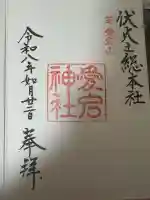 伏火之総本社
愛宕
神社
奉拝
令和八年如月廿二日